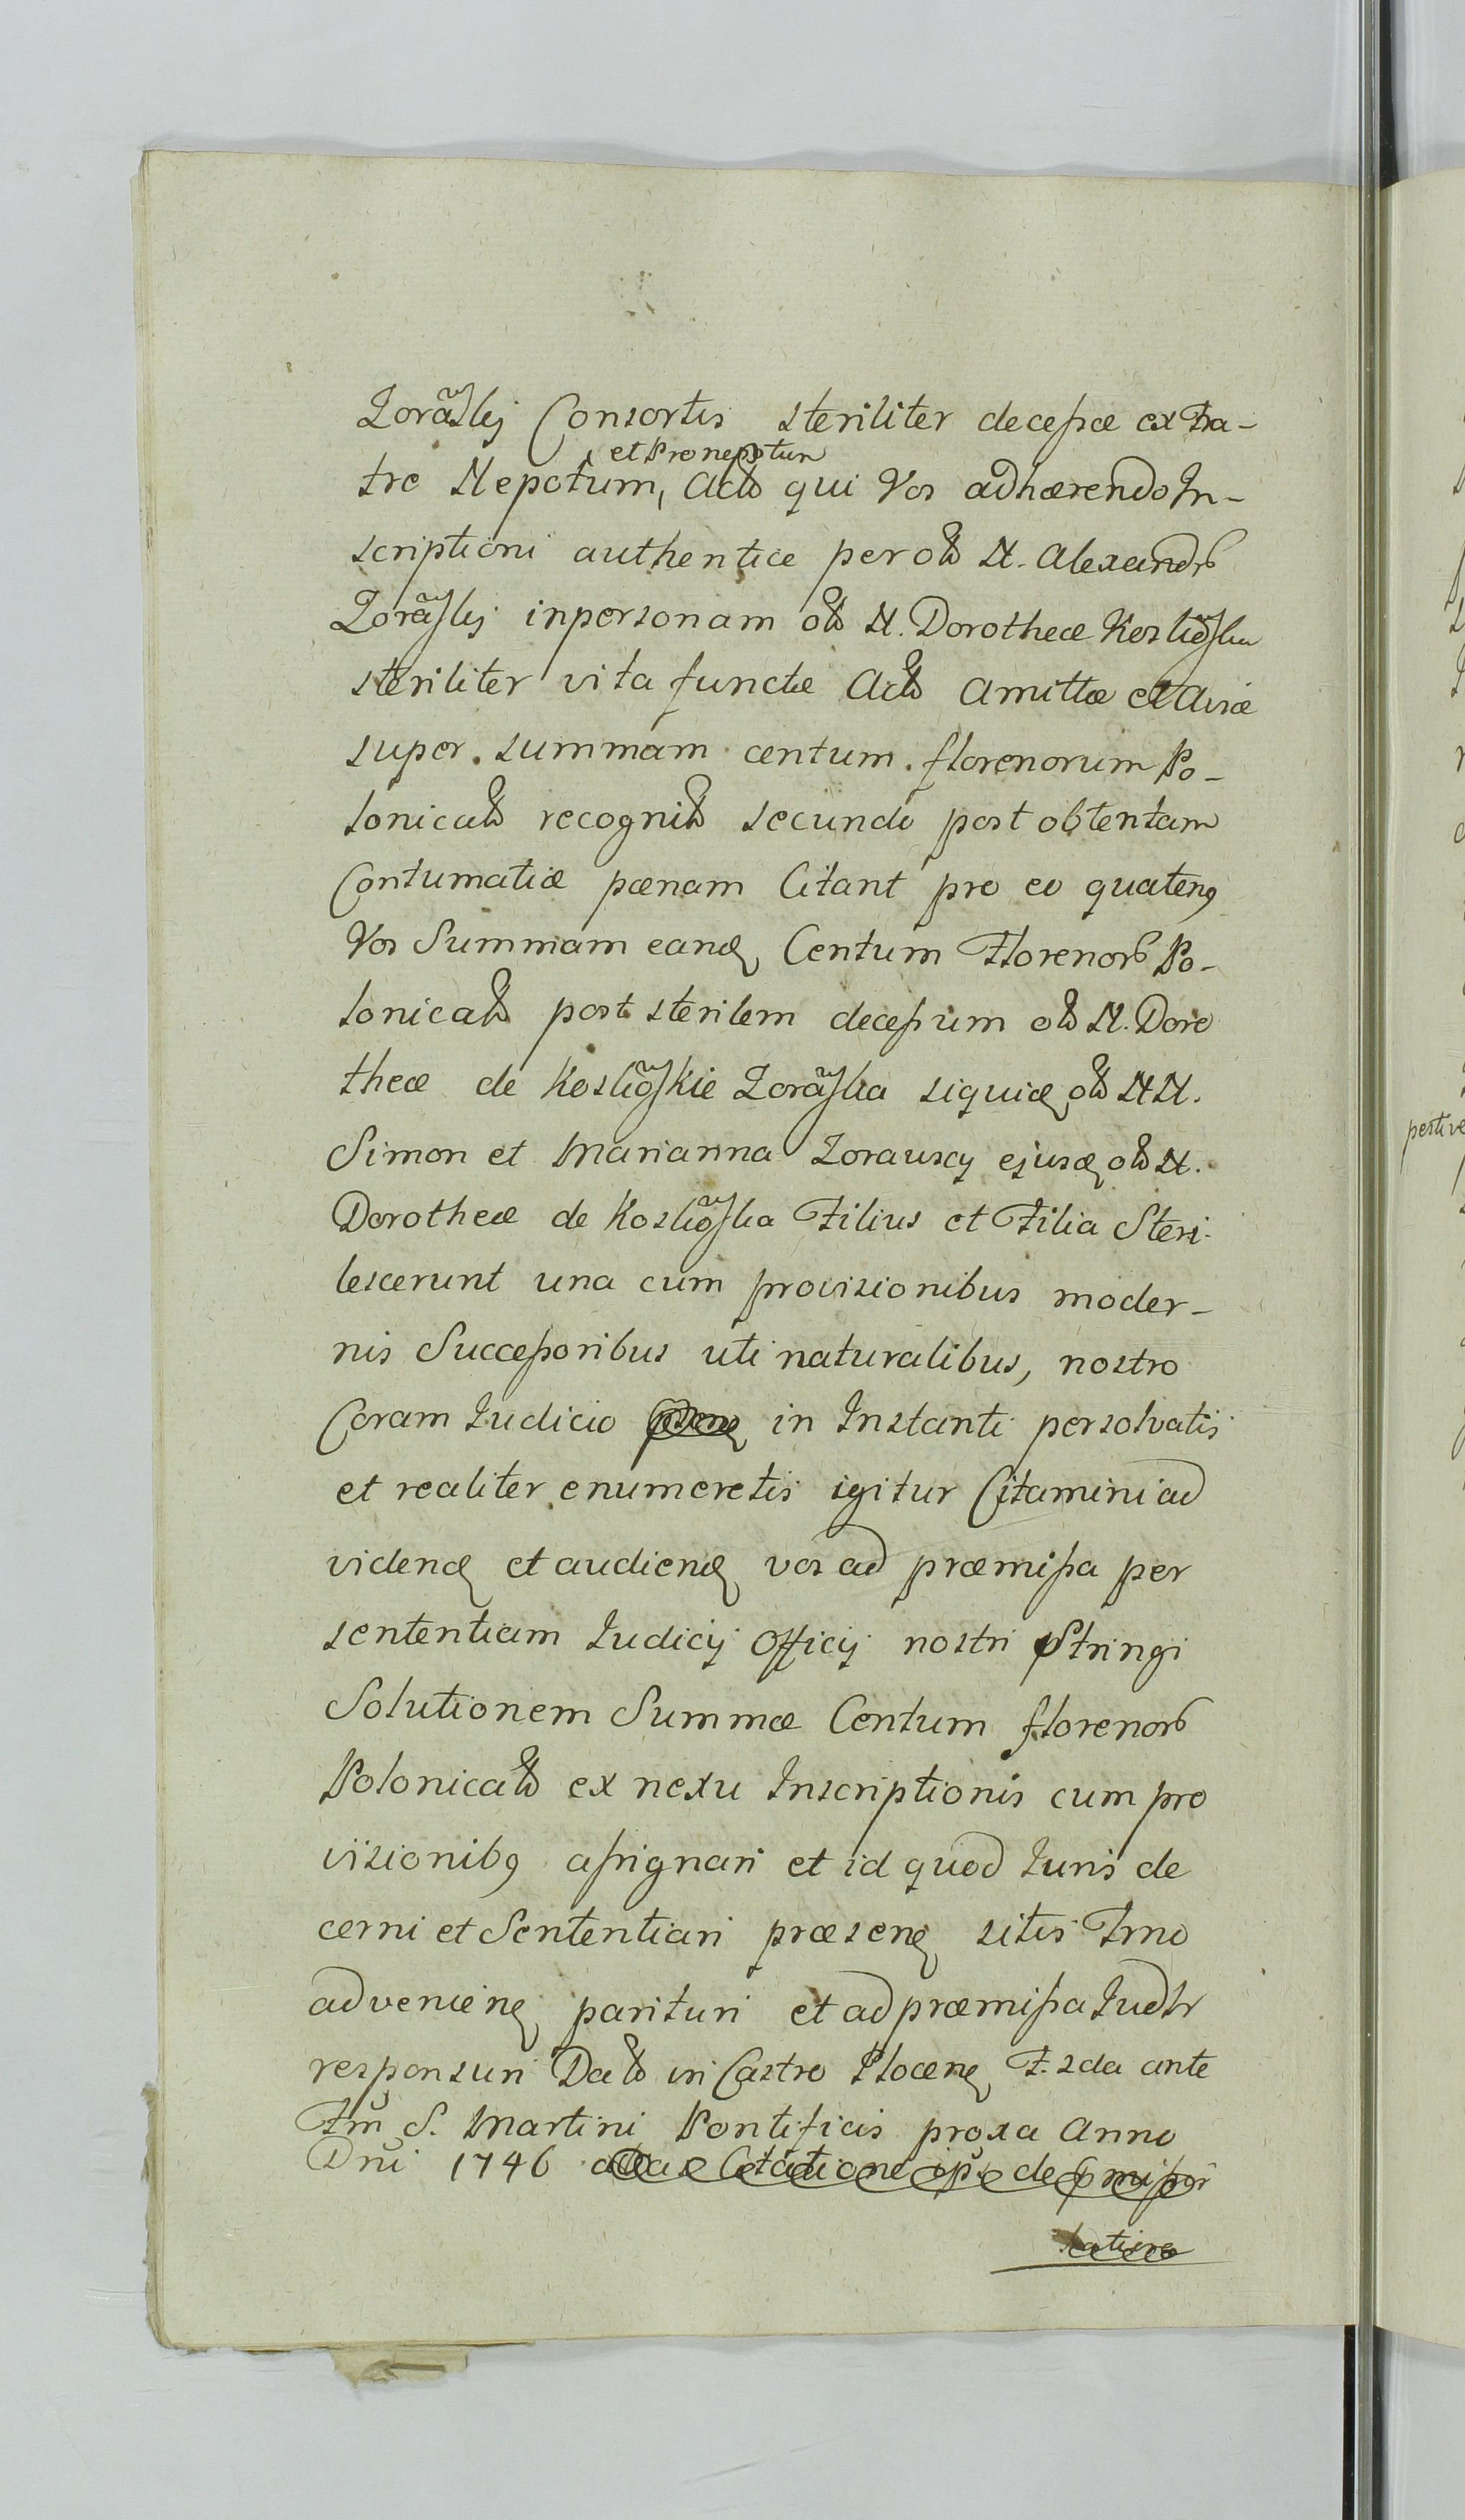 Zorãskij Consortis steriliter decessæ ex Fra-
et Pronepotum
tre Nepotum, Act qui Vos adhærendo In-
scriptioni authenticæ per olt N. Alexandr
Zorãskij in personam olt N. Dorotheæ Koskõska
steriliter vita functæ Act Amittæ et Aviæ
super summam centum florenorum Po-
lonicalt recognit secundo post obtentam
Contumatiæ pœnam Citant pro eo quateng
Vos Summam eand Centum Florenor Po-
lonicalt post sterilem decessum olt N. Doro
theæ de Koskõskie Zorãska siquid olt NN.
Simon et Marianna Zorauscy ejusd olt N.
Dorotheæ de Koskõska Filius et Filia Steri-
lescerunt una cum provisionibus moder-
nis Successoribus uti naturalibus, nostro
Coram Iudicio in Instanti persolvatis
et realiter enumeretis igitur Citamini ad
vidend et audiend vos ad præmissa per
sententiam Iudicij Officij nostri pstringi
Solutionem Summæ Centum florenor
Polonicalt ex nexu Inscriptionis cum pro
visionibg assignari et id quod Iuris de
cerni et Sententiari præsen sitis Trno
advenien parituri et ad præmissa Iudlr
responsuri Dat in Castro Plocen F. 2da ante
Fm̃ S. Martini Pontificis proxa Anno
Dnĩ 1746 Citatione de